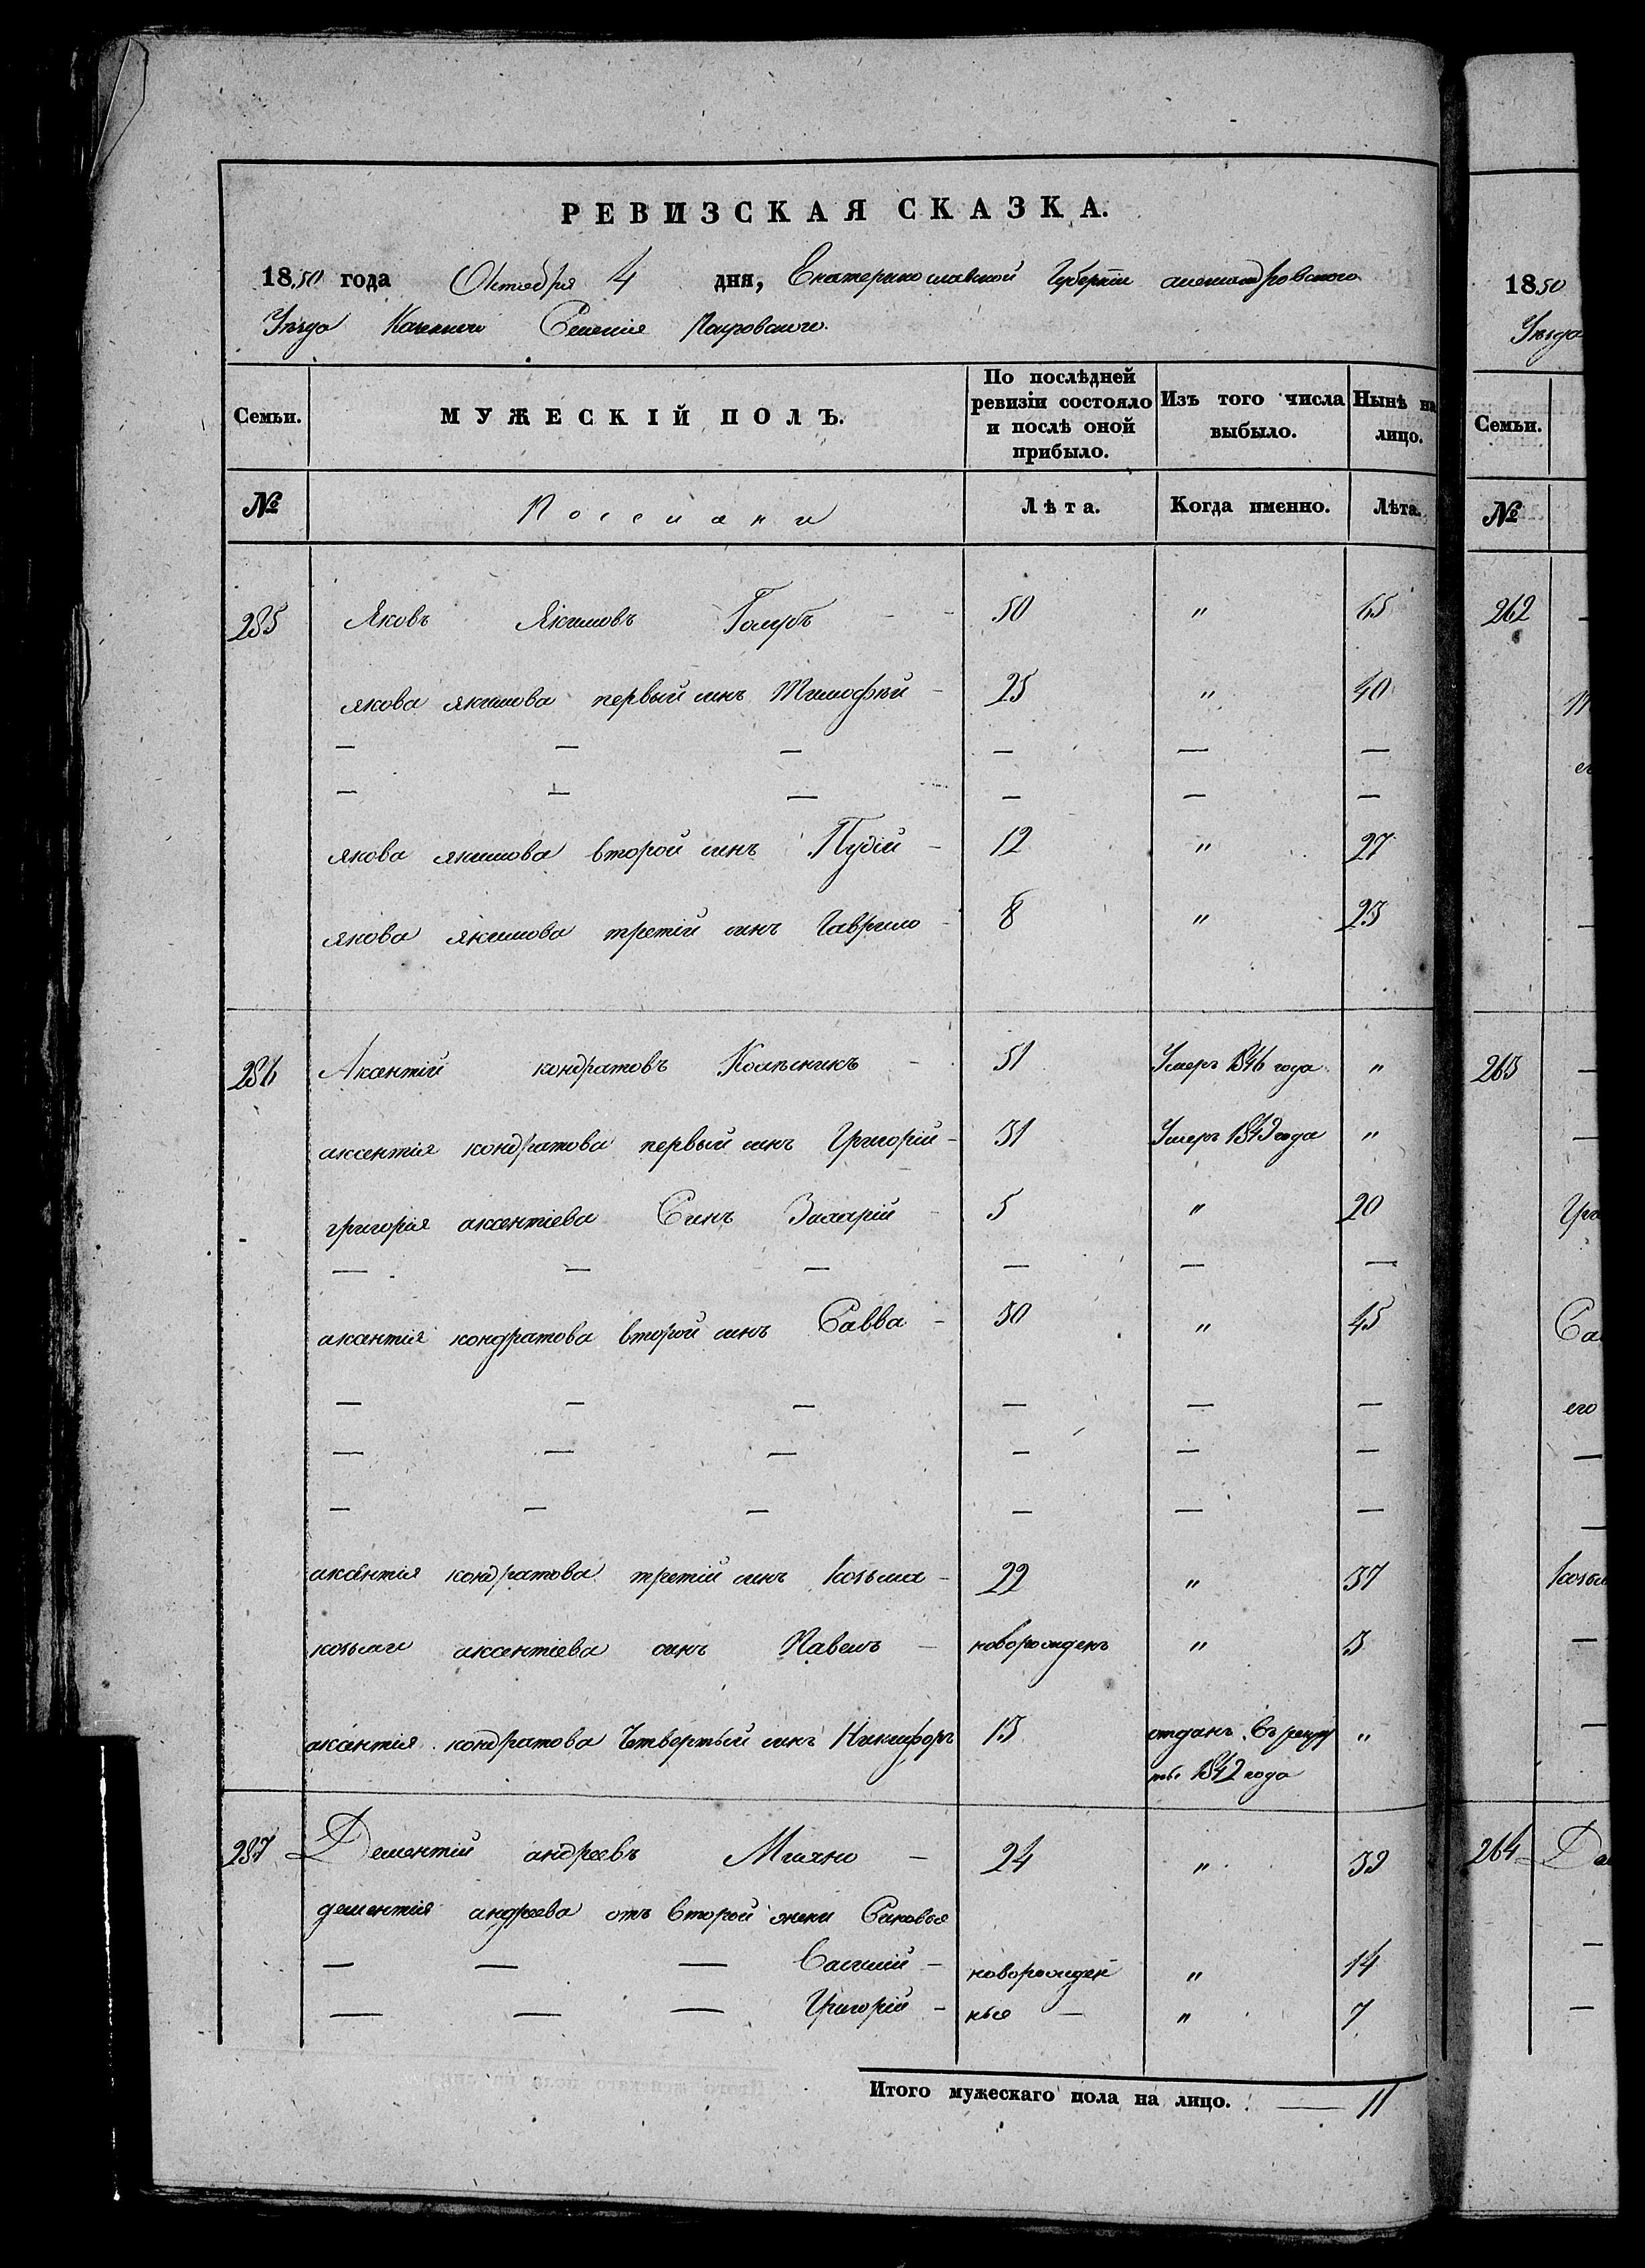 РЕВИЗСКАЯ СКАЗКА.
1850 года Октября 4 дня, Екатеринославской Губерніи александровского
Уезда Казенного Селенія Покровского.
Семьи. МУЖЕСКІЙ ПОЛЪ. По послѣдней ревизіи состояло и послѣ оной прибыло. Изъ того числа выбыло. Нынѣ на лицо.
№ Поселяни Лѣта. Когда именно. Лѣта.
235 Яковъ Якимовъ Голубъ - - 50 " 65
якова якимова первый синъ Тимофѣй - 25 " 40
— — — — — —
— — — — — —
якова якимова второй синъ Пудій - 12 " 27
якова якимова третій синъ Гаврило - 8 " 23
236 Аксентій кондратовъ Колѣсникъ - 51 Умеръ 1846 года "
аксентія кондратова первый синъ Григорій - 31 Умеръ 1849 года "
григорія аксентіева Синъ Захарій - 5 " 20
— — — — — —
аксентія кондратова второй синъ Савва - 30 " 45
— — — — — —
— — — — — —
— — — — — —
аксентія кондратова третій синъ козьма - 22 " 37
козьми аксентіева синъ Павелъ - новорожденъ " 3
аксентія кондратова Четвертый синъ Никифоръ 13 отданъ въ рекру "
ты 1842 года
237 Дементій андреевъ Мияно - 24 " 39
дементія андреева отъ второй жени Синовья
— — — Василій - новорожден " 14
— — — Григорій - ные — " 7
Итого мужескаго пола на лицо. — 11
1850
Уезда
Семьи.
№
262
263
его
264